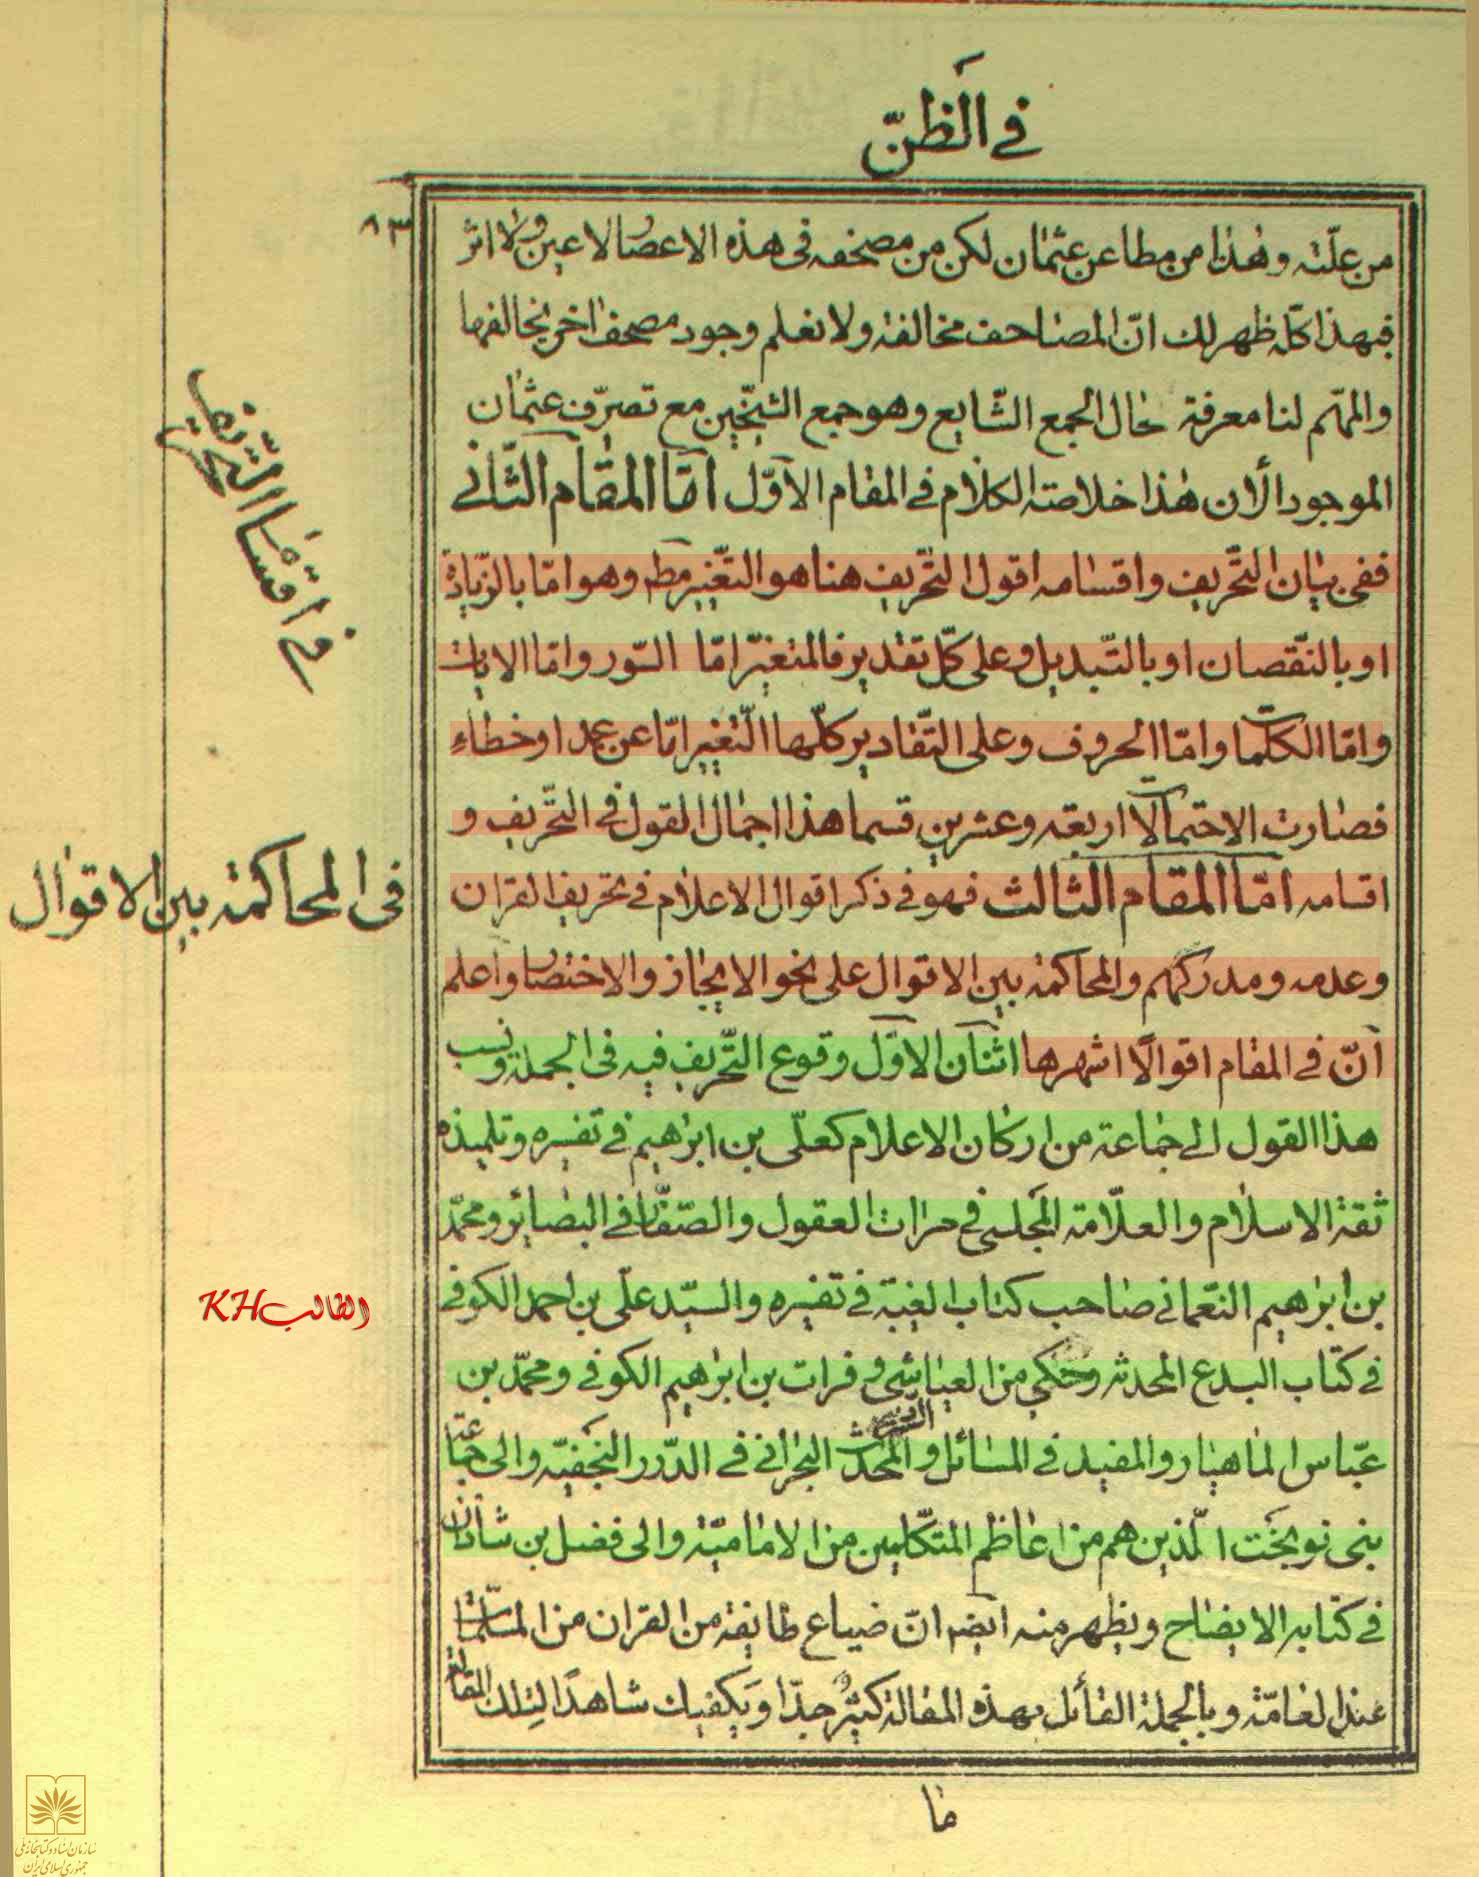 في الظنّ
٨٣
من علّته وهذا من مطاعن عثمان لكن من مصحفه فى هذه الاعصار لا عين ولا اثر
فبهذا كلّه ظهر لك انّ المصاحف مخالفة ولا نعلم وجود مصحف اخر يخالفها
والمهّم لنا معرفة حال الجمع الشّايع وهو جمع الشيخين مع تصرّف عثمان
الموجود الأن هذا خلاصة الكلام في المقام الاوّل امّا المقام الثّاني
ففي بيان التّحريف واقسامه اقول التّحريف هنا هو التغّيير مطم وهو امّا بالزّيادة
او بالنّقصان او بالتّبديل وعلى كلّ تقدير فالمتغيّر امّا السّور وامّا الايات
وامّا الكلمات وامّا الحروف وعلى التّقادير كلّها التّغيير امّا عن عمد او خطاء
فصارت الاحتمالات اربعة وعشرين قسما هذا اجمال القول في التّحريف و
اقسامه امّا المقام الثالث فهو في ذكر اقوال الاعلام في تحريف القران
وعدمه ومدركهم والمحاكمة بين الاقوال على نحو الايجاز والاختصار واعلم
انّ في المقام اقوالًا اشهرها اثنان الاوّل وقوع التّحريف فيه فى الجملة ونسب
هذا القول الى جماعة من اركان الاعلام كعلّى بن ابراهيم في تفسيره وتلميذه
ثقة الاسلام والعلّامة المجلسى في مرات العقول والصّفّار في البصائر ومحمّد
بن ابراهيم النّعماني صاحب كتاب الغيبة في تفسيره والسيّد علّى بن احمد الكوفى
في كتاب البدع المحدثه وحكي من العياشى وفرات بن ابراهيم الكوفي ومحمّد بن
عبّاس الماهيار والمفيد في المسائل والمحدث البحراني في الدّرر النجفيّه والى جماعة
بنى نوبخت الّذين هم من اعاظم المتكلّمين من الاماميّة والى فضل بن شاذان
في كتابه الايضاح ويظهر منه ايضم انّ ضياع طايفة من القران من المسلّمات
عند العامّة وبالجملة القائل بهذه المقالة كثير جدّا ويكفيك شاهدًا لتلك المقالة
ما
في اقسام التّحريف
فى المحاكمة بين الاقوال
الطالب KH
سازمان اسناد و کتابخانه ملی
جمهوری اسلامی ایران